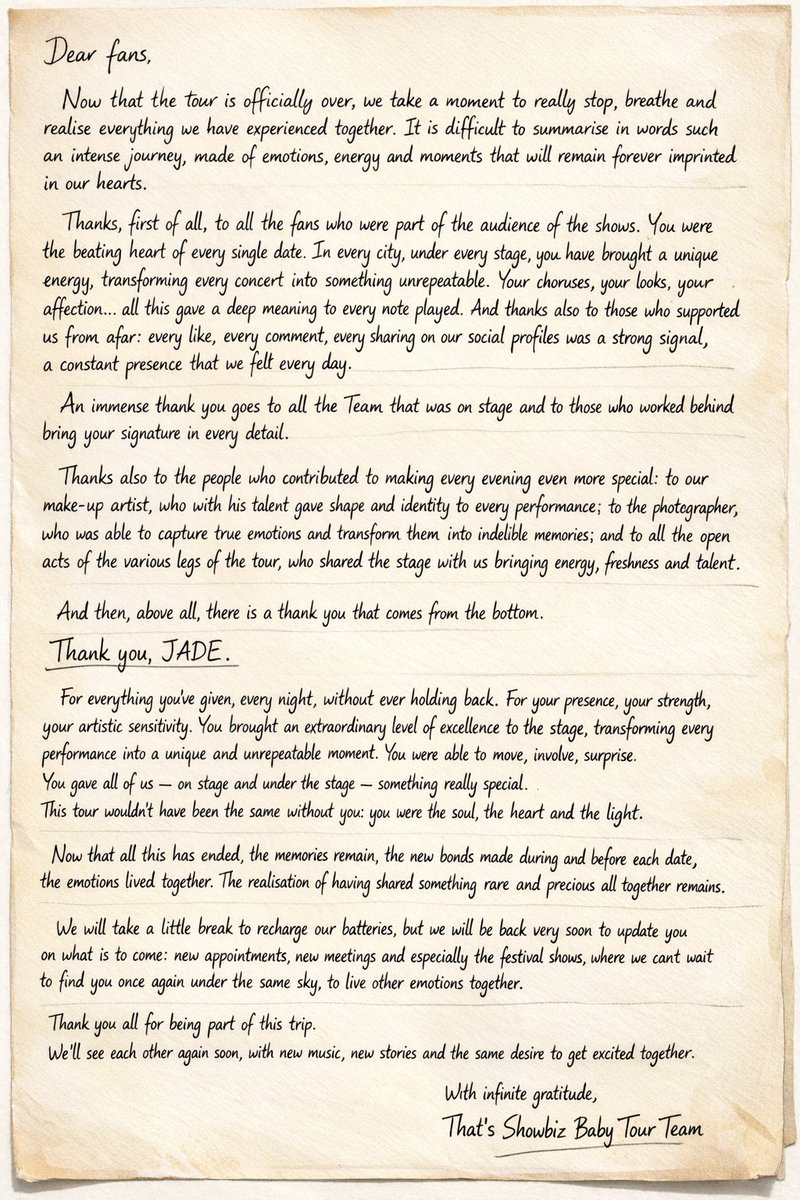 Dear fans,
Now that the tour is officially over, we take a moment to really stop, breathe and
realise everything we have experienced together. It is difficult to summarise in words such
an intense journey, made of emotions, energy and moments that will remain forever imprinted
in our hearts.
Thanks, first of all, to all the fans who were part of the audience of the shows. You were
the beating heart of every single date. In every city, under every stage, you have brought a unique
energy, transforming every concert into something unrepeatable. Your choruses, your looks, your
affection... all this gave a deep meaning to every note played. And thanks also to those who supported
us from afar: every like, every comment, every sharing on our social profiles was a strong signal,
a constant presence that we felt every day.
An immense thank you goes to all the Team that was on stage and to those who worked behind
bring your signature in every detail.
Thanks also to the people who contributed to making every evening even more special: to our
make-up artist, who with his talent gave shape and identity to every performance; to the photographer,
who was able to capture true emotions and transform them into indelible memories; and to all the open
acts of the various legs of the tour, who shared the stage with us bringing energy, freshness and talent.
And then, above all, there is a thank you that comes from the bottom.
Thank you, JADE.
For everything you've given, every night, without ever holding back. For your presence, your strength,
your artistic sensitivity. You brought an extraordinary level of excellence to the stage, transforming every
performance into a unique and unrepeatable moment. You were able to move, involve, surprise.
You gave all of us — on stage and under the stage — something really special.
This tour wouldn't have been the same without you: you were the soul, the heart and the light.
Now that all this has ended, the memories remain, the new bonds made during and before each date,
the emotions lived together. The realisation of having shared something rare and precious all together remains.
We will take a little break to recharge our batteries, but we will be back very soon to update you
on what is to come: new appointments, new meetings and especially the festival shows, where we cant wait
to find you once again under the same sky, to live other emotions together.
Thank you all for being part of this trip.
We'll see each other again soon, with new music, new stories and the same desire to get excited together.
With infinite gratitude,
That's Showbiz Baby Tour Team